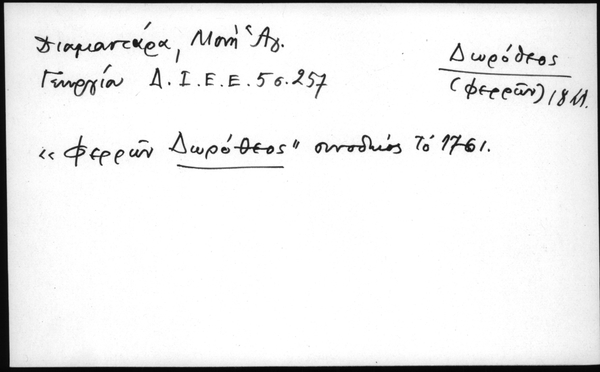 Διαμαντάρα, Μονή Ἁγ.
Γεωργίου Δ.Ι.Ε.Ε. 5 σ. 257
Δωρόθεος
(Φερρῶν) 18
«Φερρῶν Δωρόθεος" συνοδικός τό 1761.